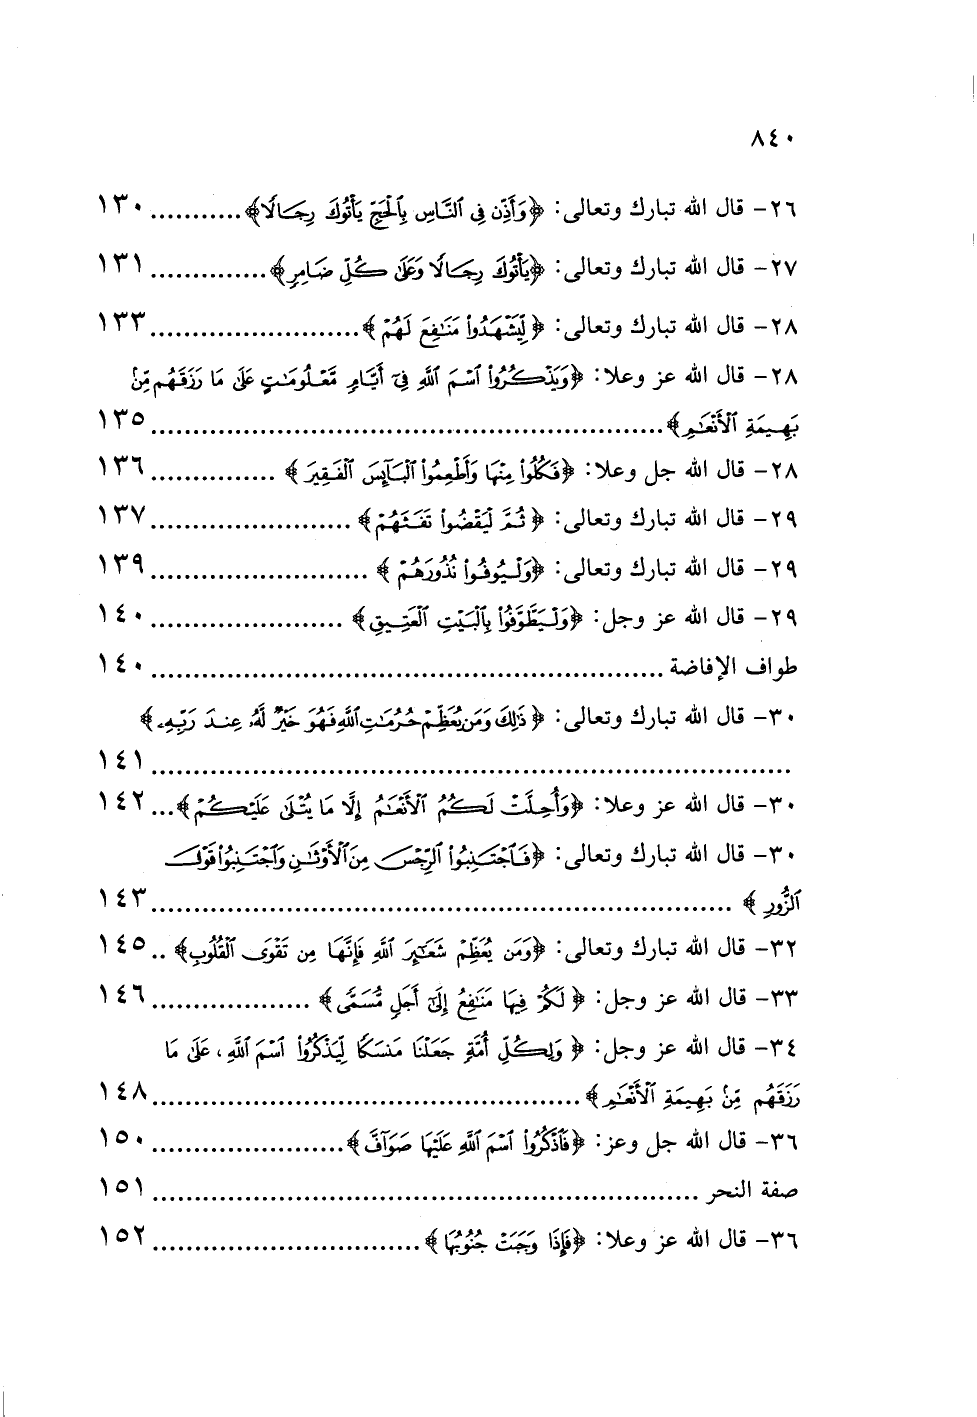 ٨٤٠
٢٦- قال الله تبارك وتعالى: ﴿وَأَذِّن فِي ٱلنَّاسِ بِٱلْحَجِّ يَأْتُوكَ رِجَالًا﴾........... ١٣٠
٢٧- قال الله تبارك وتعالى: ﴿يَأْتُوكَ رِجَالًا وَعَلَىٰ كُلِّ ضَامِرٍ﴾.............. ١٣١
٢٨- قال الله تبارك وتعالى: ﴿لِّيَشْهَدُوا۟ مَنَٰفِعَ لَهُمْ﴾......................... ١٣٣
٢٨- قال الله عز وعلا: ﴿وَيَذْكُرُوا۟ ٱسْمَ ٱللَّهِ فِىٓ أَيَّامٍ مَّعْلُومَٰتٍ عَلَىٰ مَا رَزَقَهُم مِّنۢ
بَهِيمَةِ ٱلْأَنْعَٰمِ﴾................................................................ ١٣٥
٢٨- قال الله جل وعلا: ﴿فَكُلُوا۟ مِنْهَا وَأَطْعِمُوا۟ ٱلْبَآئِسَ ٱلْفَقِيرَ﴾ ............... ١٣٦
٢٩- قال الله تبارك وتعالى: ﴿ثُمَّ لْيَقْضُوا۟ تَفَثَهُمْ﴾ ........................ ١٣٧
٢٩- قال الله تبارك وتعالى: ﴿وَلْيُوفُوا۟ نُذُورَهُمْ﴾ .......................... ١٣٩
٢٩- قال الله عز وجل: ﴿وَلْيَطَّوَّفُوا۟ بِٱلْبَيْتِ ٱلْعَتِيقِ﴾ ....................... ١٤٠
طواف الإفاضة ................................................................ ١٤٠
٣٠- قال الله تبارك وتعالى: ﴿ذَٰلِكَ وَمَن يُعَظِّمْ حُرُمَٰتِ ٱللَّهِ فَهُوَ خَيْرٌ لَّهُۥ عِندَ رَبِّهِۦ﴾
................................................................................ ١٤١
٣٠- قال الله عز وعلا: ﴿وَأُحِلَّتْ لَكُمُ ٱلْأَنْعَٰمُ إِلَّا مَا يُتْلَىٰ عَلَيْكُمْ﴾... ١٤٢
٣٠- قال الله تبارك وتعالى: ﴿فَٱجْتَنِبُوا۟ ٱلرِّجْسَ مِنَ ٱلْأَوْثَٰنِ وَٱجْتَنِبُوا۟ قَوْلَ
ٱلزُّورِ﴾ ........................................................................ ١٤٣
٣٢- قال الله تبارك وتعالى: ﴿وَمَن يُعَظِّمْ شَعَٰٓئِرَ ٱللَّهِ فَإِنَّهَا مِن تَقْوَى ٱلْقُلُوبِ﴾ .. ١٤٥
٣٣- قال الله عز وجل: ﴿لَكُمْ فِيهَا مَنَٰفِعُ إِلَىٰٓ أَجَلٍ مُّسَمًّى﴾ ................... ١٤٦
٣٤- قال الله عز وجل: ﴿وَلِكُلِّ أُمَّةٍ جَعَلْنَا مَنسَكًا لِّيَذْكُرُوا۟ ٱسْمَ ٱللَّهِ، عَلَىٰ مَا
رَزَقَهُم مِّنۢ بَهِيمَةِ ٱلْأَنْعَٰمِ﴾..................................................... ١٤٨
٣٦- قال الله جل وعز: ﴿فَٱذْكُرُوا۟ ٱسْمَ ٱللَّهِ عَلَيْهَا صَوَآفَّ﴾....................... ١٥٠
صفة النحر ..................................................................... ١٥١
٣٦- قال الله عز وعلا: ﴿فَإِذَا وَجَبَتْ جُنُوبُهَا﴾................................. ١٥٢